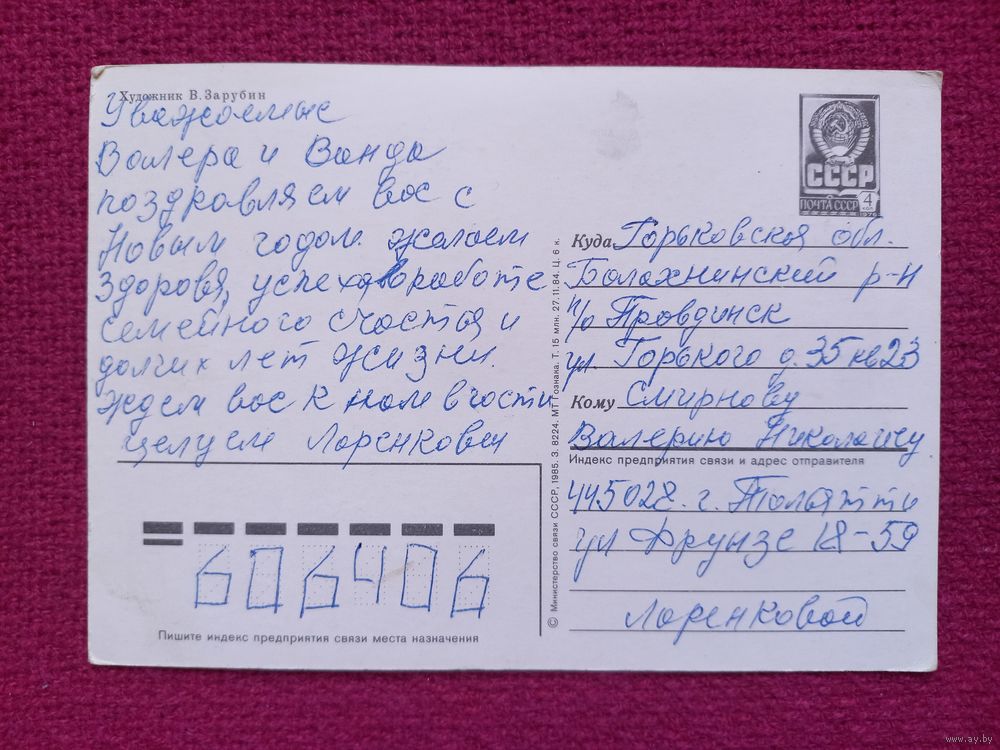 Художник В. Зарубин
Уважаемые
Валера и Ванда
поздравляем вас с
Новым годом желаем
здоровя, успехов в работе
семейного счастья и
долгих лет жизни.
ждем вас к нам в гости
целуем Ларенковы
СССР
ПОЧТА СССР
4
коп
1976
Куда Горьковская обл.
Балахнинский р-н
п/о Правдинск
ул. Горького д. 35 кв 23
Кому Смирнову
Валерию Николаичу
Индекс предприятия связи и адрес отправителя
445028 г. Тольятти
ул Фрунзе 18-59
Ларенковой
© Министерство связи СССР, 1985. З. 8224. МТ Гознака. Т. 15 млн. 27.11.84. Ц. 6 к.
606406
Пишите индекс предприятия связи места назначения
www.ay.by